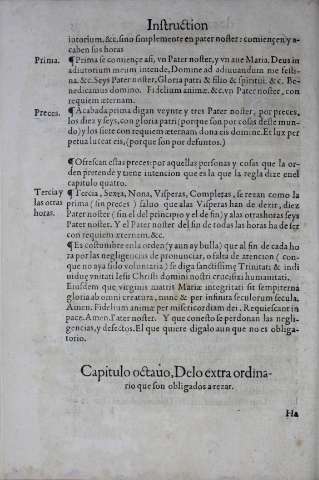 Instruction
iatorium.&c. sino simplemente en pater noster: comiençen y a-
caben sus horas
Prima. ¶ Prima se comiençe asi, vn Pater noster, y vn aue Maria. Deus in
adiutorium meum intende, Domine ad adiuuandum me festi-
na. &c. Seys Pater noster, Gloria patri & filio & spiritui. &c. Be-
nedicamus domino. Fidelium animæ &c. vn Pater noster, con
requiem æternam.
Preces. ¶ Acabada prima digan veynte y tres Pater noster, por preces,
los diez y seys, con gloria patri (porque son por cosas deste mun-
do) y los siete con requiem æternam dona eis domine. Et lux per
petua luceat eis, (porque son por defuntos.)
¶ Ofrescan estas preces: por aquellas personas y cosas que la or-
den pretende y tiene intencion que es la que la regla dize enel
capitulo quatro.
Tercia y las otras horas. ¶ Tercia, Sexta, Nona, Visperas, Completas, se rezan como la
prima (sin preces) saluo que alas Visperas han de dezir, diez
Pater noster (sin el del principio y el de fin) y alas otras horas seys
Pater noster. Y el Pater noster del fin de todas las horas ha de ser
con requiem æternam. &c.
¶ Es costumbre en la orden (y aun ay bulla) que al fin de cada ho
ra por las negligencias de pronunciar, o falta de atencion (con-
que no aya sido voluntaria) se diga sanctissimę Trinitati & indi
uiduę vnitati Iesu Christi domini nostri crucifixi humanitati.
Eiusdem que virginis matris Mariæ integritati sit sempiterna
gloria ab omni creatura, nunc & per infinita seculorum secula.
Amen. Fidelium animæ per misericordiam dei, Requiescant in
pace. Amen. Pater noster. Y que con esto se perdonan las negli-
gencias, y defectos. El que quiere digalo aun que no es obliga-
torio.
Capitulo octauo, Delo extra ordina-
rio que son obligados a rezar.
Ha